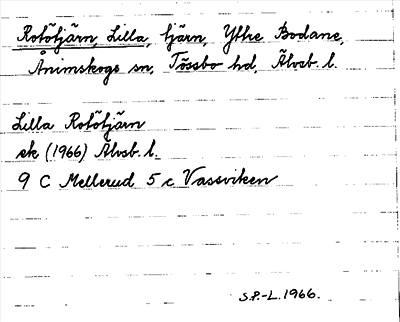 Rotötjärn, Lilla, tjärn, Yttre Bodane,
Ånimskogs sn, Tössbo hd, Älvsb. l.
Lilla Rotötjärn
ek (1966) Älvsb. l.
9 C Mellerud 5 c Vassviken
S.P.-L. 1966.